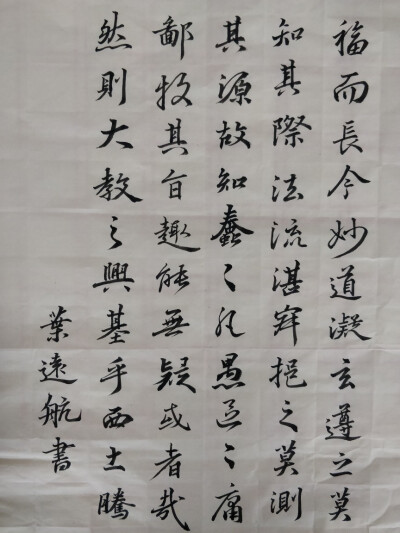 福而長今妙道凝玄遵之莫
知其際法流湛寂挹之莫測
其源故知蠢〻凡愚區〻庸
鄙投其旨趣能無疑或者哉
然則大教之興基乎西土騰
葉遠航書